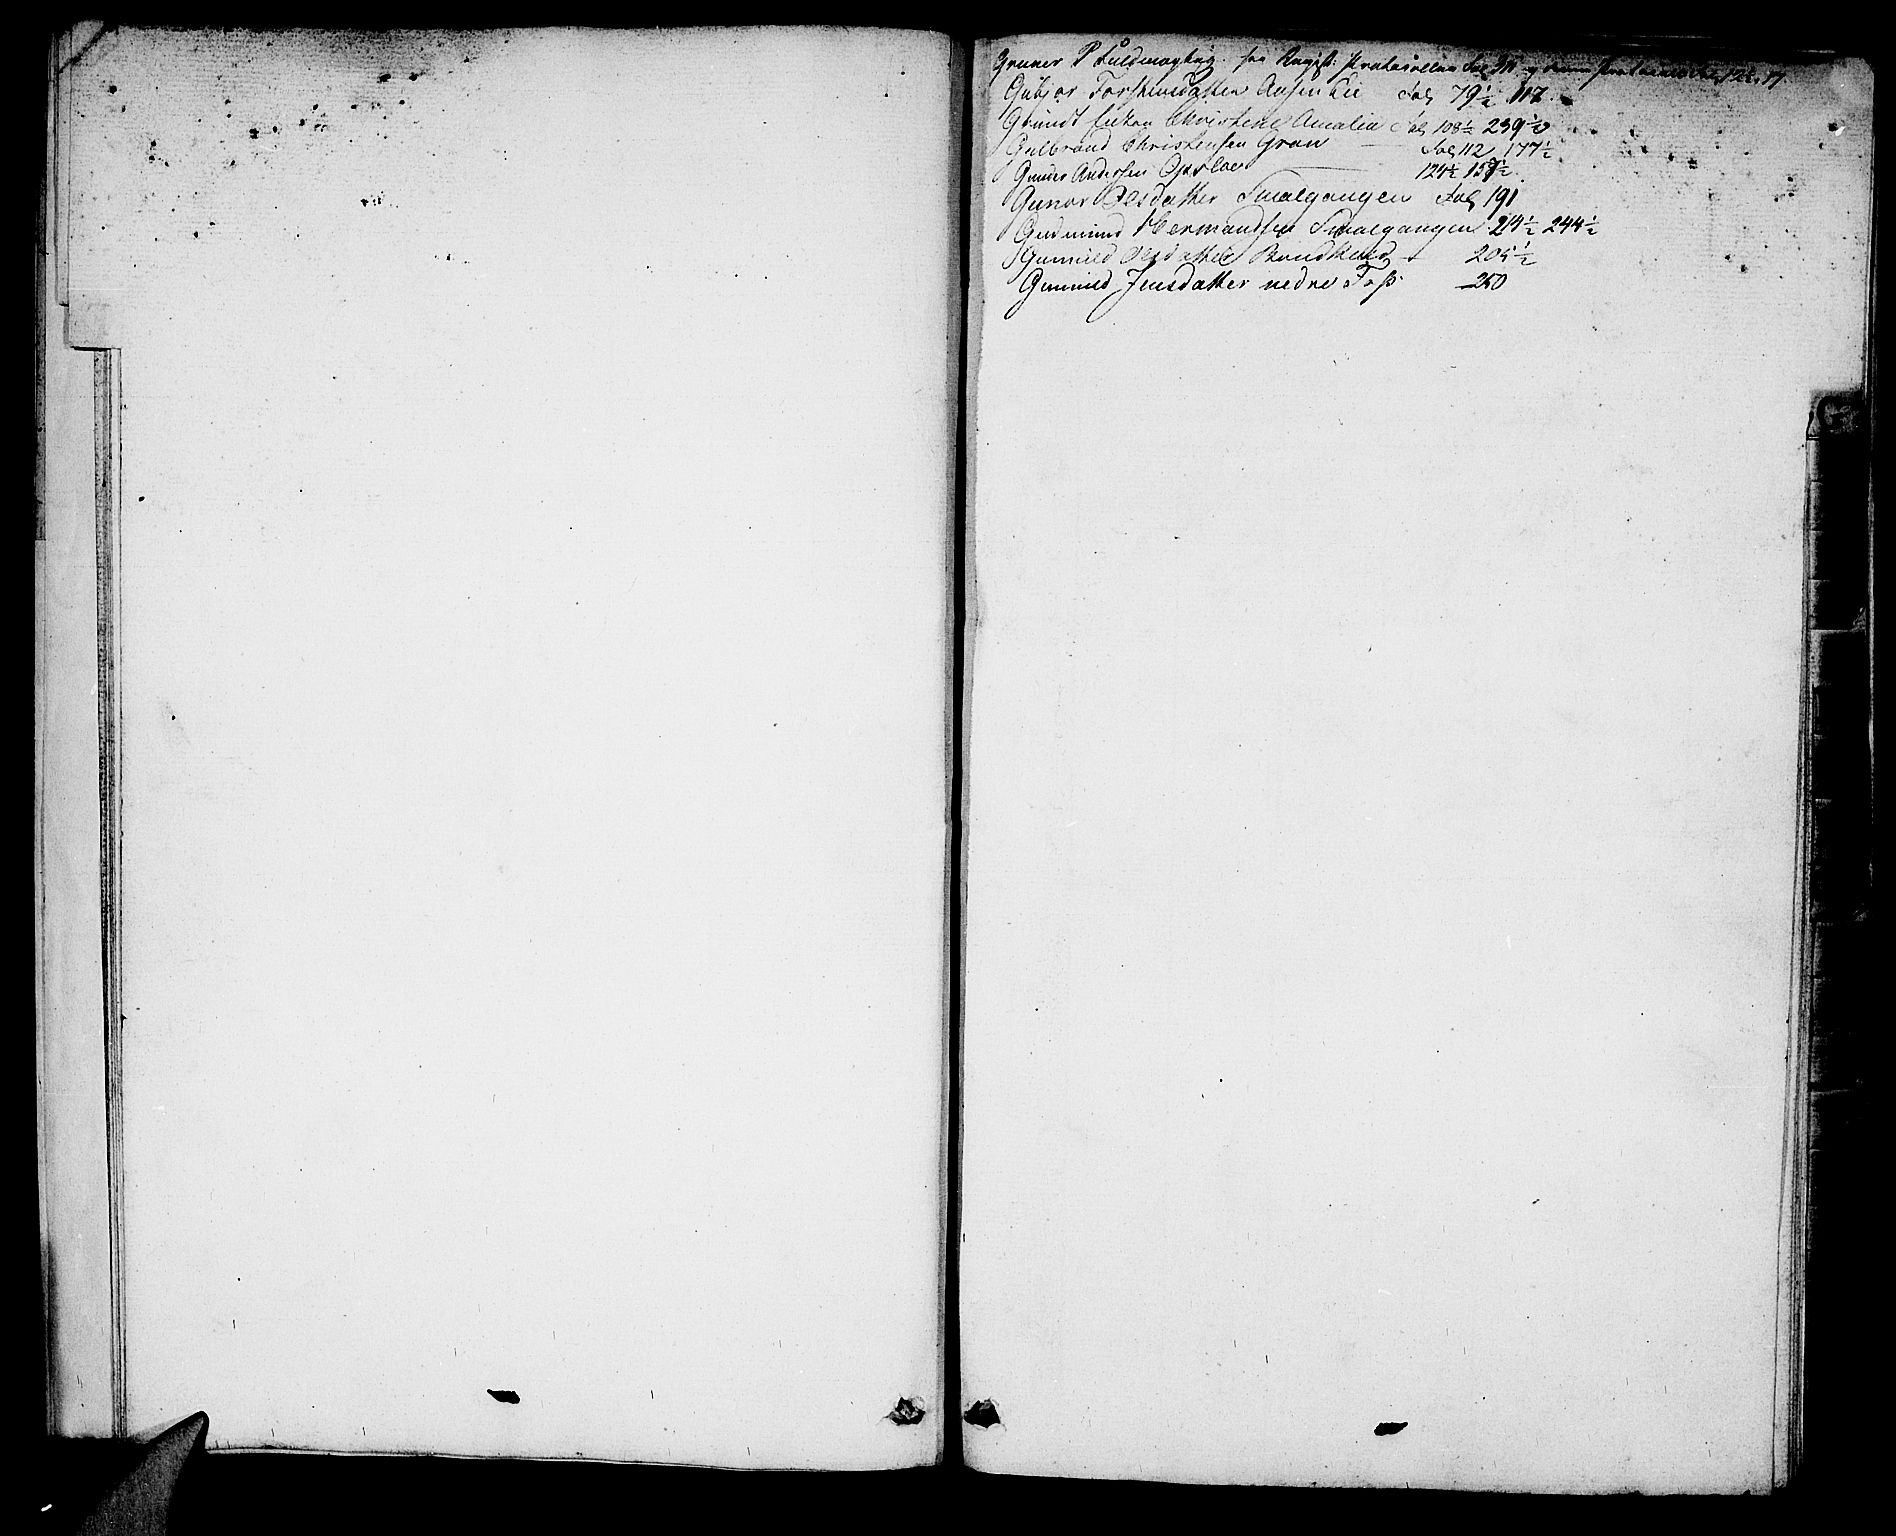 Gruner P Fuldmægtig. see Regist: Protocollen Fol og denne Protocol Fol 122. 17.
Gubjør Torstensdatter Fol 79½ 117.
Grundt Christene Amalia Fol 108½ 239½
Gulbrand Christensen Gran — Fol 112 177½
Gunder Andersen Opsloe — 124½ 157½
Gunor Olsdatter Smalgangen Fol 191
Gudmund Hermandsen Smalgangen 214½ 244½
Gunnild Olsdatter 205½
Gunnild Jensdatter nedre Foss — 250
G